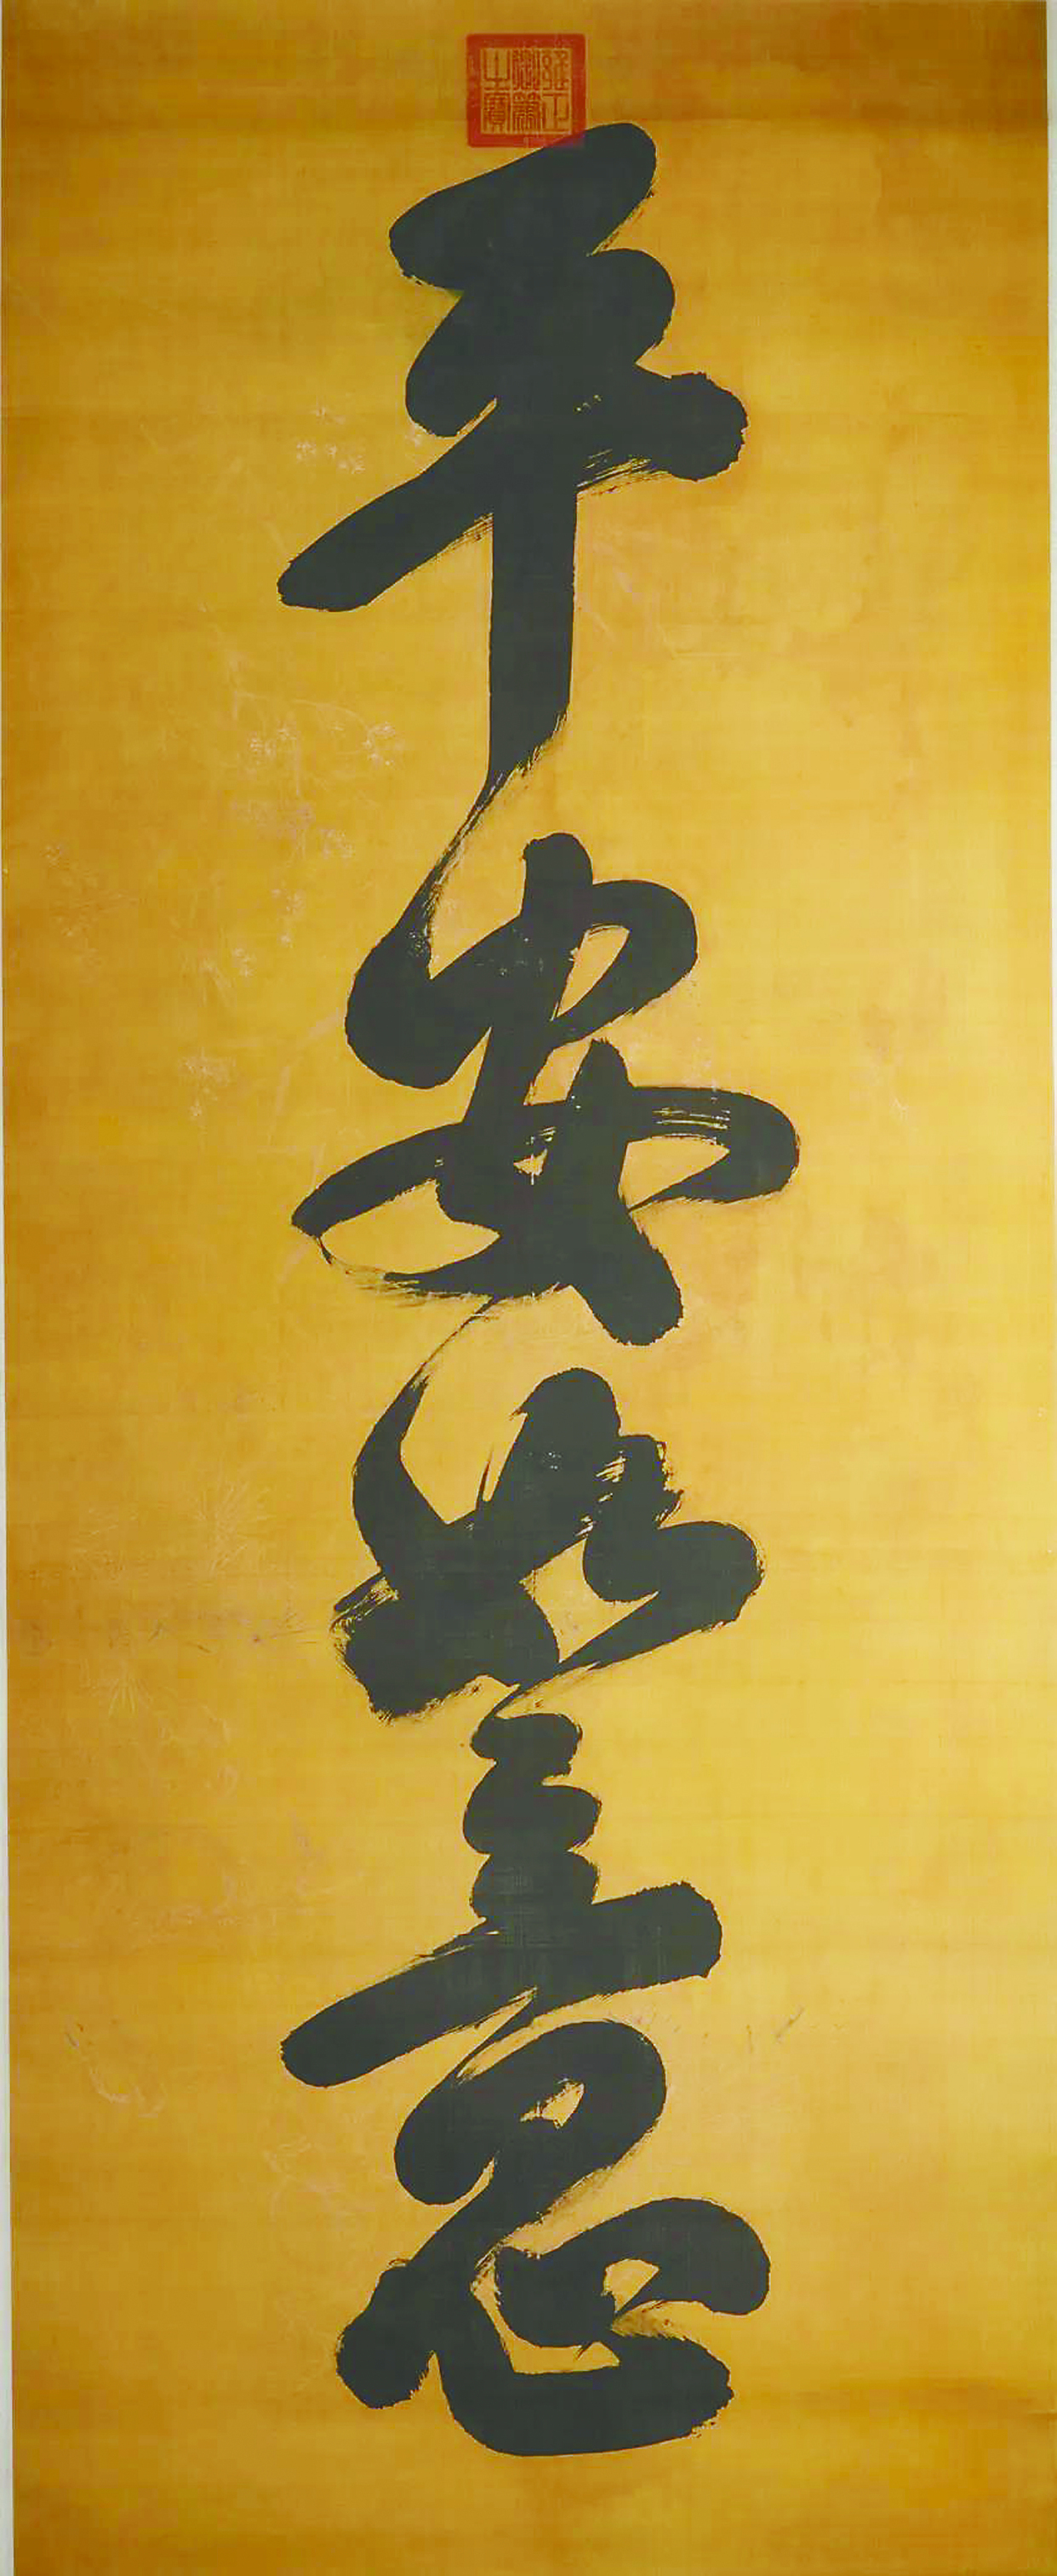 雍正御筆之寶
平安如意